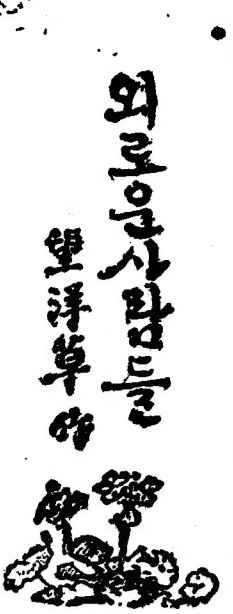 외로운사람들
望洋草